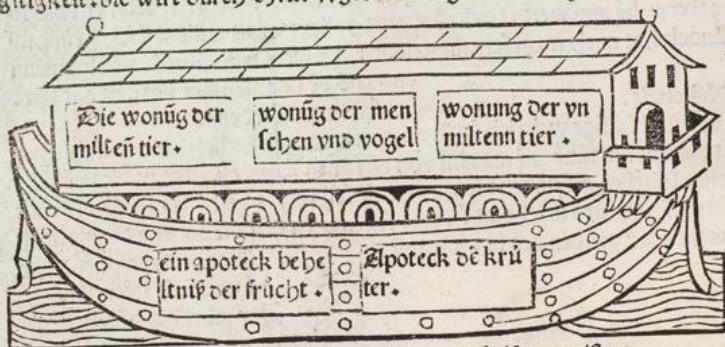 die wirt durch
Die wonūg der
milteñ tier.
wonūg der men
schen vnd vogel
wonung der vn
miltenn tier.
ein apoteck behe
ltniß der frůcht.
Apoteck dē krů
ter.